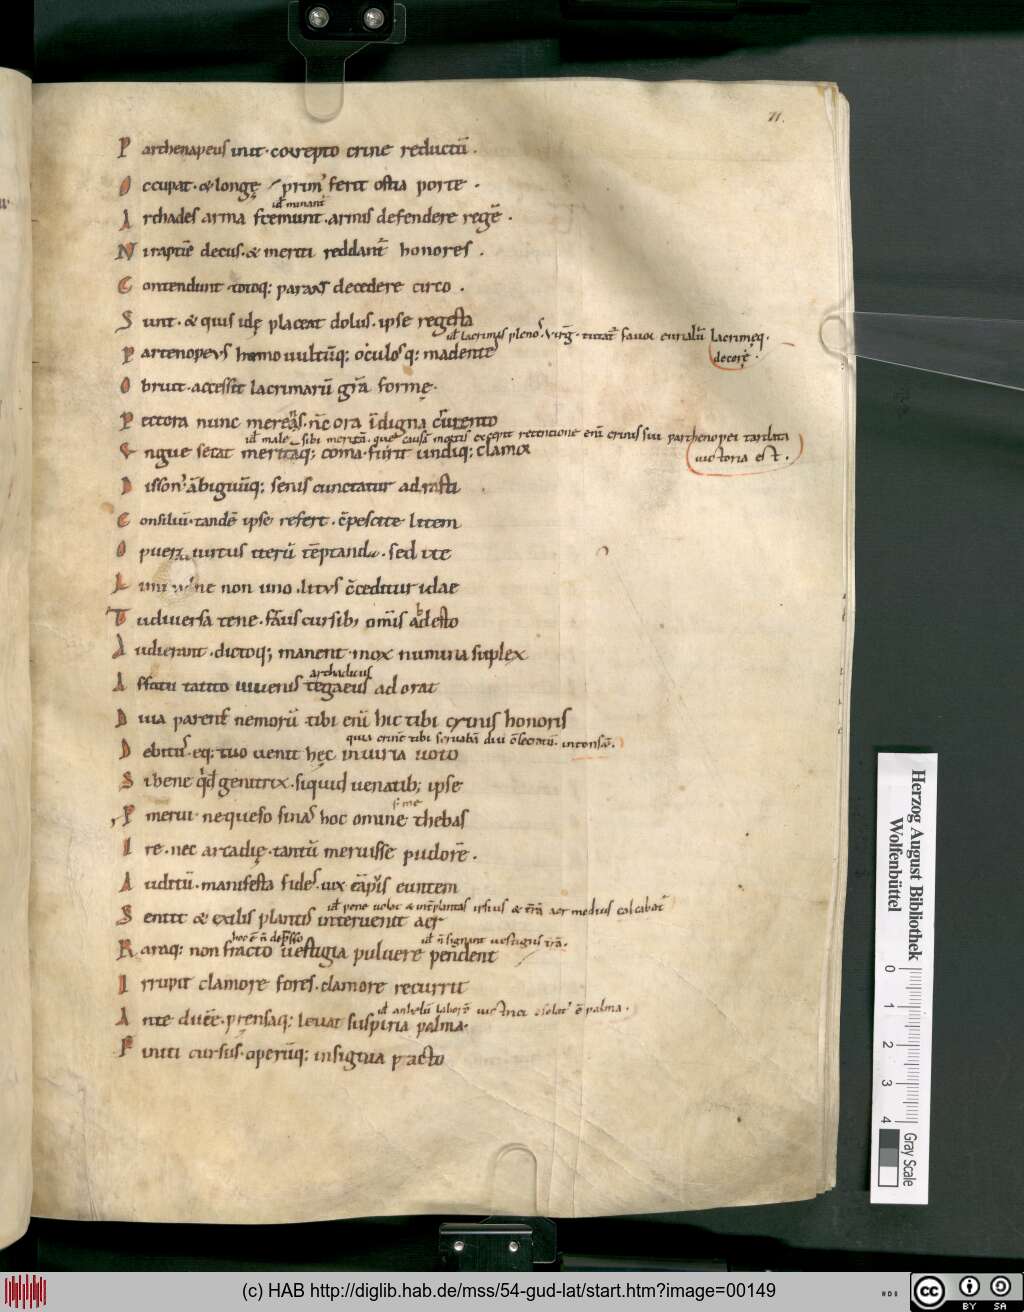 71.
P arthenapeus init· correpto crine reductū .
O ccupat· & longę prim᾽ ferit ostia porte .
id ̄ minant᾽
A rchades arma fremunt· armis defendere regē .
N i raptūe decus· & meriti reddant᾽ honores .
C ontendunt totoq; parant decedere circo .
S unt· & quis idę placeat dolus· ipse regesta
id ̄ lacrimis plenos· Virḡ· tutat᾽ fauor eurialū lacrimęq·
decorę ·
P artenopeus humo uultūq; oculosq; madente
O bruit· accessit lacrimarū grā formę·
P ectora nunc merens· nc̄ ora īdigna cruento
id ̄ male sibi meritā· que causā mortis excepit retentione enī crinis sui parthenopei tardata
uictoria est .
U ngue secat meritaq; coma· furit undiq; clamor
D isson᾽ ābiguūq; senis cunctatur adrasti
C onsiliū· tandē ipse refert· c̄pescite litem
O pueri uirtus iterū tēptanda· sed ite
L imite non uno· litus c̄ceditur idae
T u diuersa tene· fraus cursib; om̄is abesto
A udierant· dictoq; manent· mox numina suplex
archadicus
A ffatu tacito iuuenis tegaeus adorat
D iua parens nemorū tibi enī hic tibi crinis honoris
quia crinē tibi seruabā diui c̄secratū· intonsū·
D ebitus· eq; tuo uenit hęc iniuria uoto
S i bene qd̄ genitrix· siquid uenatib; ipse
s· me
P merui ne queso sinas hoc omine thebas
I re· nec arcadię· tantū meruisse pudorē .
A uditū· manifesta fides· uix cāp̄is euntem
id ̄ pene uolat & int̄ plantas ipsius & t̄rā aer medius calcabat᾽
S entit & exilis plantis interuenit aer
hoc ē ñ depresso
id ̄ ñ signant uestigiis t̄rā·
R araq; non fracto uestigia puluere pendent
I rrupit clamore fores· clamore recurrit
id ̄ anhelū laborē uictrici c̄solat᾽ ē palma ·
A nte ducē· prensaq; leuat suspiria palma·
F initi cursus· operūq; insignia pacto
Herzog August Bibliothek
Wolfenbüttel
0 1 2 3 4
Gray Scale
(c) HAB http://diglib.hab.de/mss/54-gud-lat/start.htm?image=00149
cc BY SA